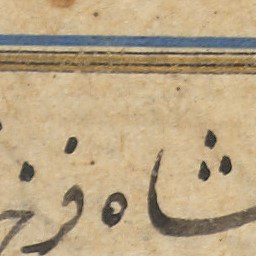 شاه فرخ